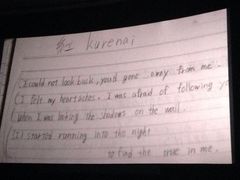 #1 Kurenai
I could not look back, you'd gone away from me.
(I felt my heart aches. I was afraid of following yo
(When I was looking the shadows on the wall.
(I) started running into the night
to find the true in me.